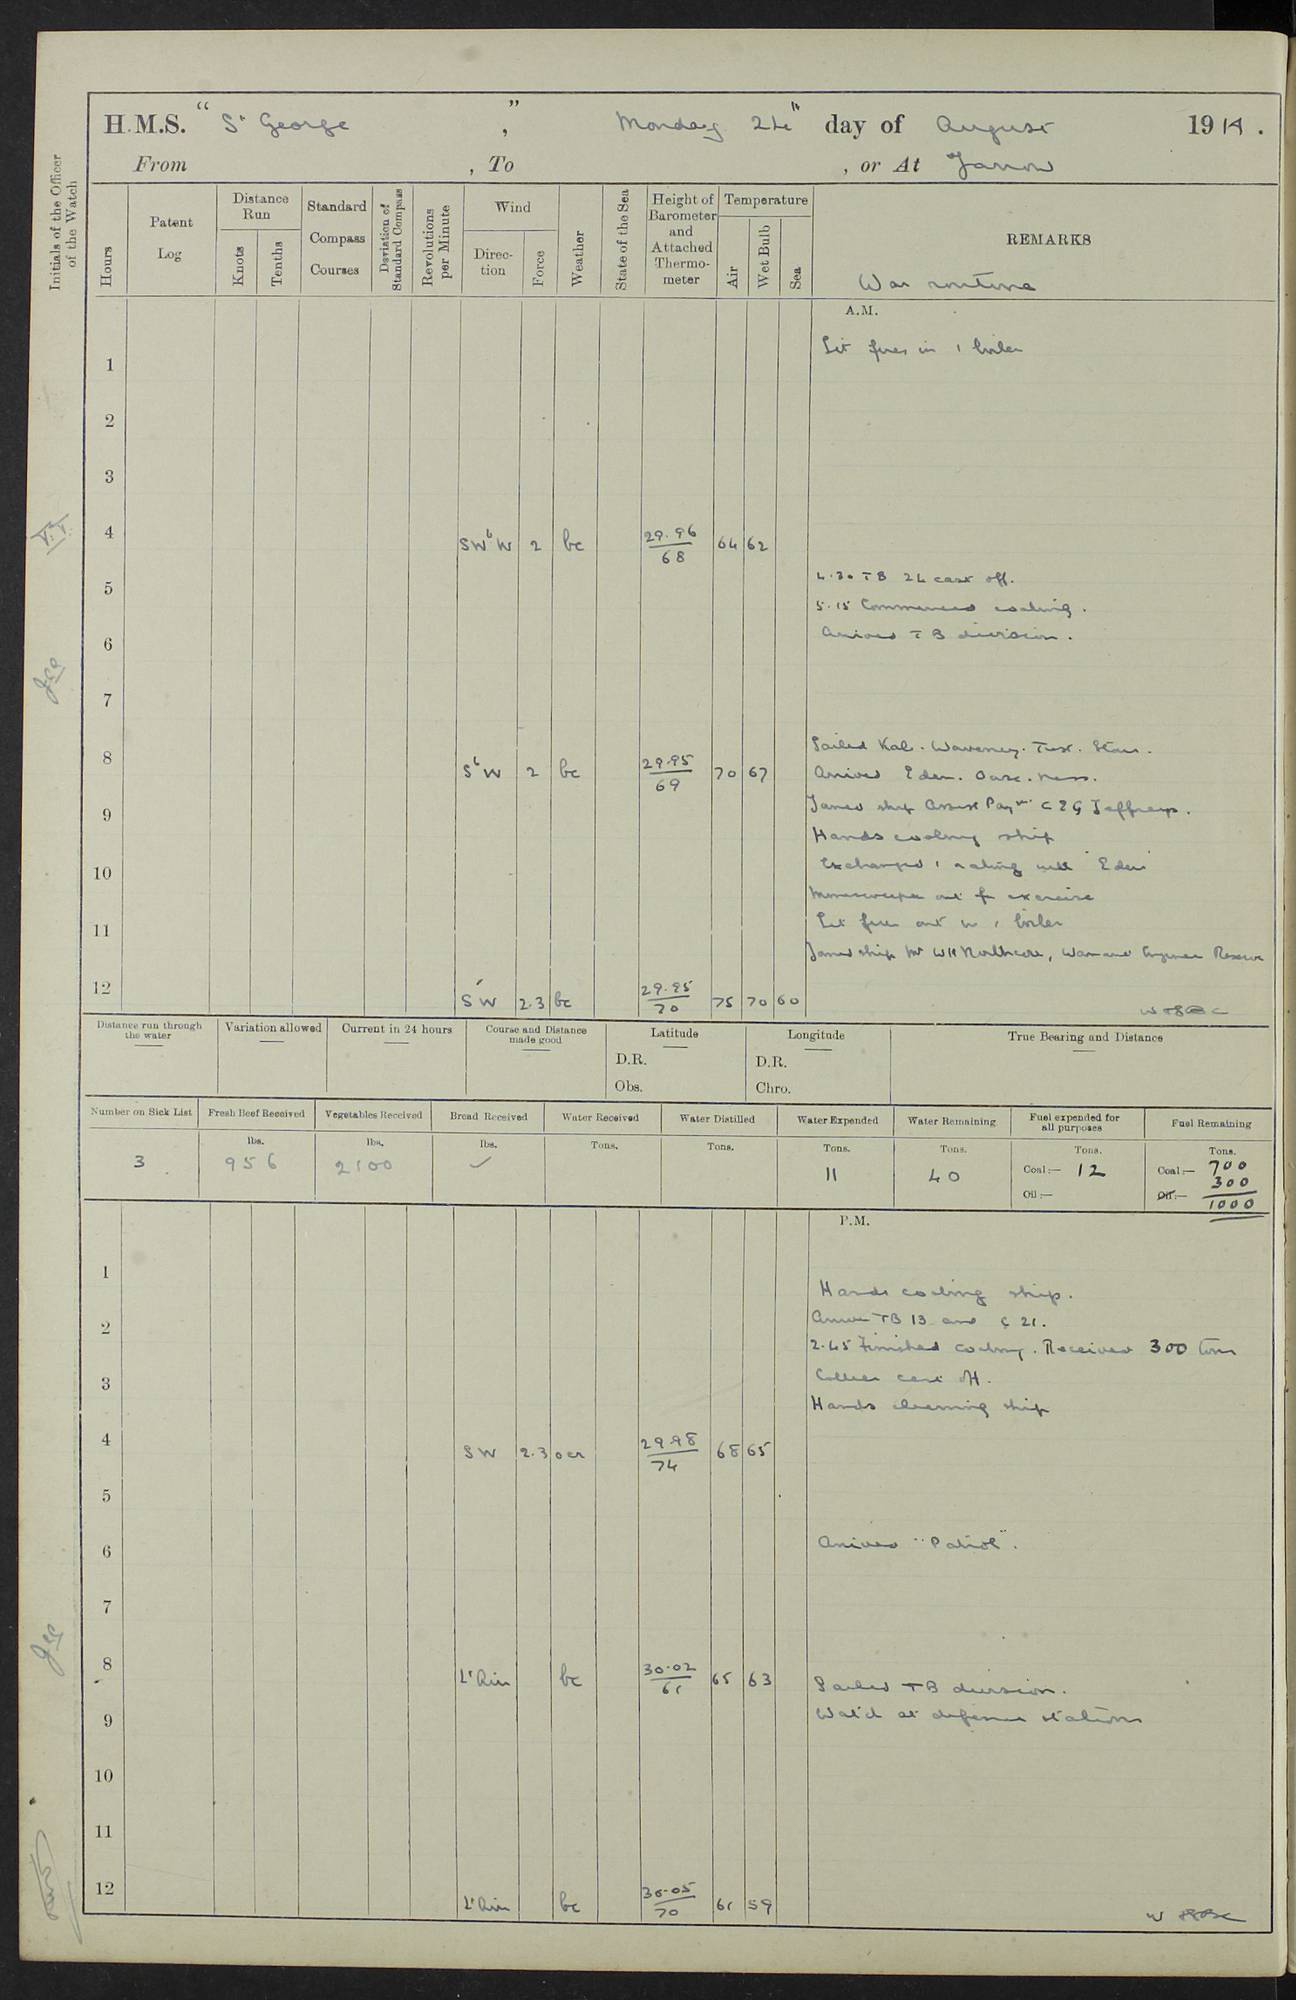 H.M.S. "St George", Monday 24th day of August 1914.
From , To , or At Jarrow
Initials of the Officer of the Watch
Hours
Patent Log
Distance Run
Knots
Tenths
Standard Compass Courses
Deviation of Standard Compass
Revolutions per Minute
Wind
Direction
Force
Weather
State of the Sea
Height of Barometer and Attached Thermometer
Temperature
Air
Wet Bulb
Sea
REMARKS
War routine
A.M.
Lit fires in 1 boiler
1
2
3
4 SWbW 2 bc 29.96 68 64 62
4.30 TB 24 cast off.
5
5.15 Commenced coaling.
Arrived TB division.
6
7
Sailed Kale. Waveney. Test. Stour.
8 SbW 2 bc 29.95 69 70 67
Arrived Eden. Ouse. Ness.
Joined ship Assist Paymr C E G Jeffreys.
9
Hands coaling ship
Exchanged 1 rating with "Eden"
10
Minesweeper out for exercise
Let fires out in 1 boiler
11
Joined ship Mr WH Northcote, Warrant Engineer Reserve
12 SW 2.3 bc 29.95 70 75 70 60
Distance run through the water
Variation allowed
Current in 24 hours
Course and Distance made good
Latitude
D.R.
Obs.
Longitude
D.R.
Chro.
True Bearing and Distance
Number on Sick List
Fresh Beef Received
Vegetables Received
Bread Received
Water Received
Water Distilled
Water Expended
Water Remaining
Fuel expended for all purposes
Fuel Remaining
lbs. lbs. lbs. Tons. Tons. Tons. Tons. Tons. Tons.
3 956 2100 ✓ 11 40 Coal:— 12 Coal:— 700
Oil:— Oil:— 300
1000
P.M.
1
Hands coaling ship.
2
Arrive TB 13 and C 21.
2.45 Finished coaling. Received 300 tons
3
Collier cast off.
Hands cleaning ship
4 SW 2.3 ocr 29.98 74 68 65
5
6
Arrived "Patrol".
7
8 Lt Airs bc 30.02 61 65 63
Sailed TB division.
9
Watch at defence stations
10
11
12 Lt Airs bc 30.05 70 61 59